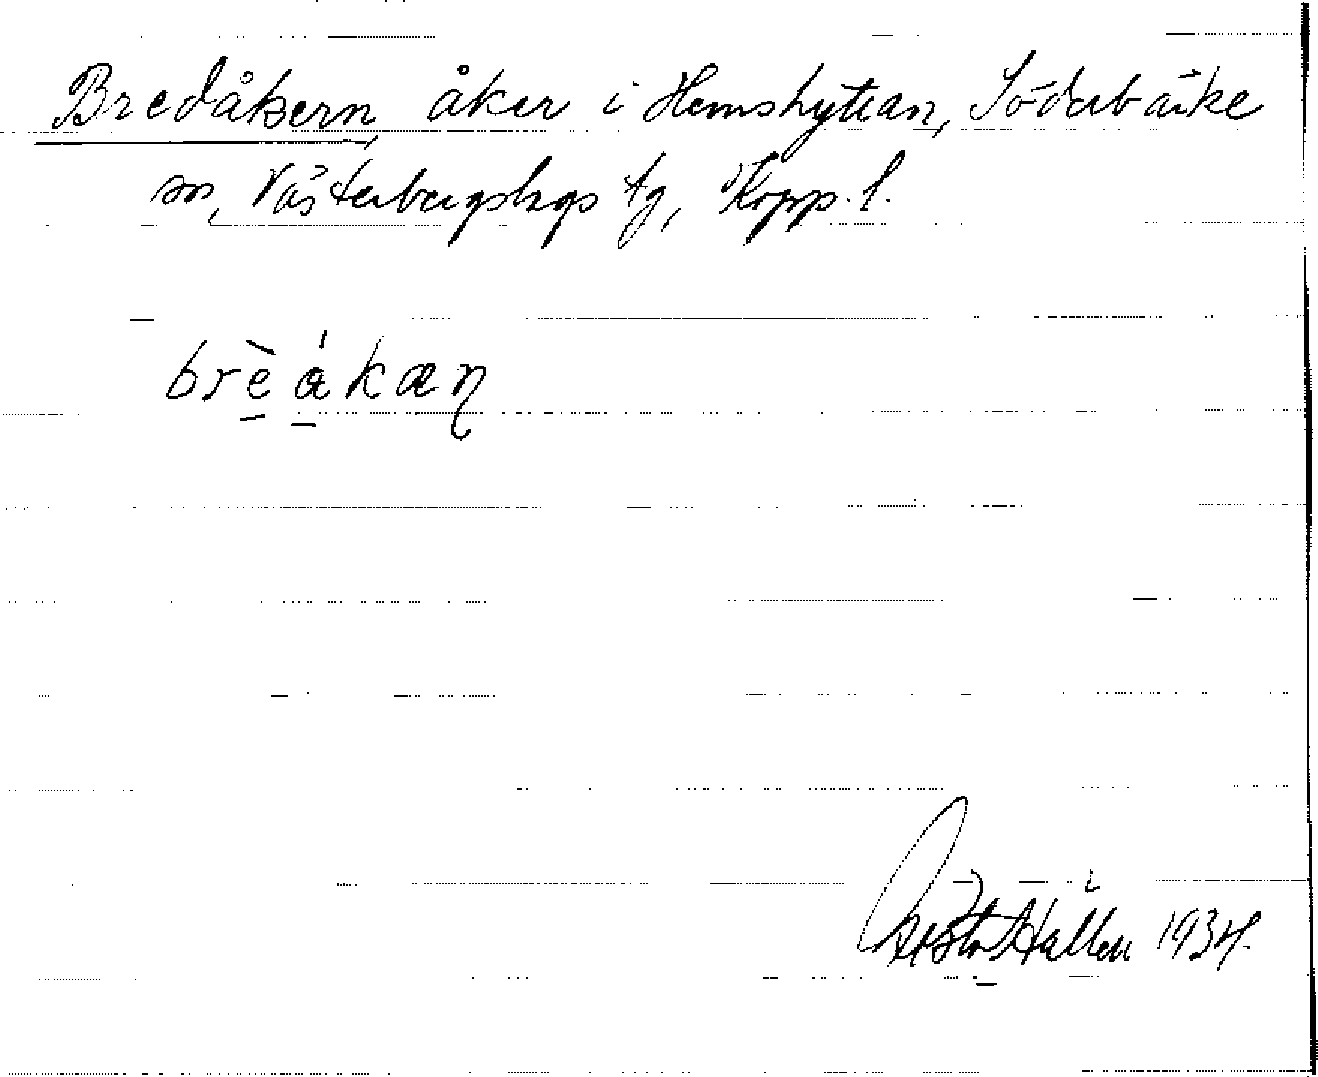 Bredåkern, åker i Hemshyttan, Söderbärke
sn, Västerbergslags tg, Kopp. l.
brè̠á̠kæɳ
Gösta Hallén 1934.